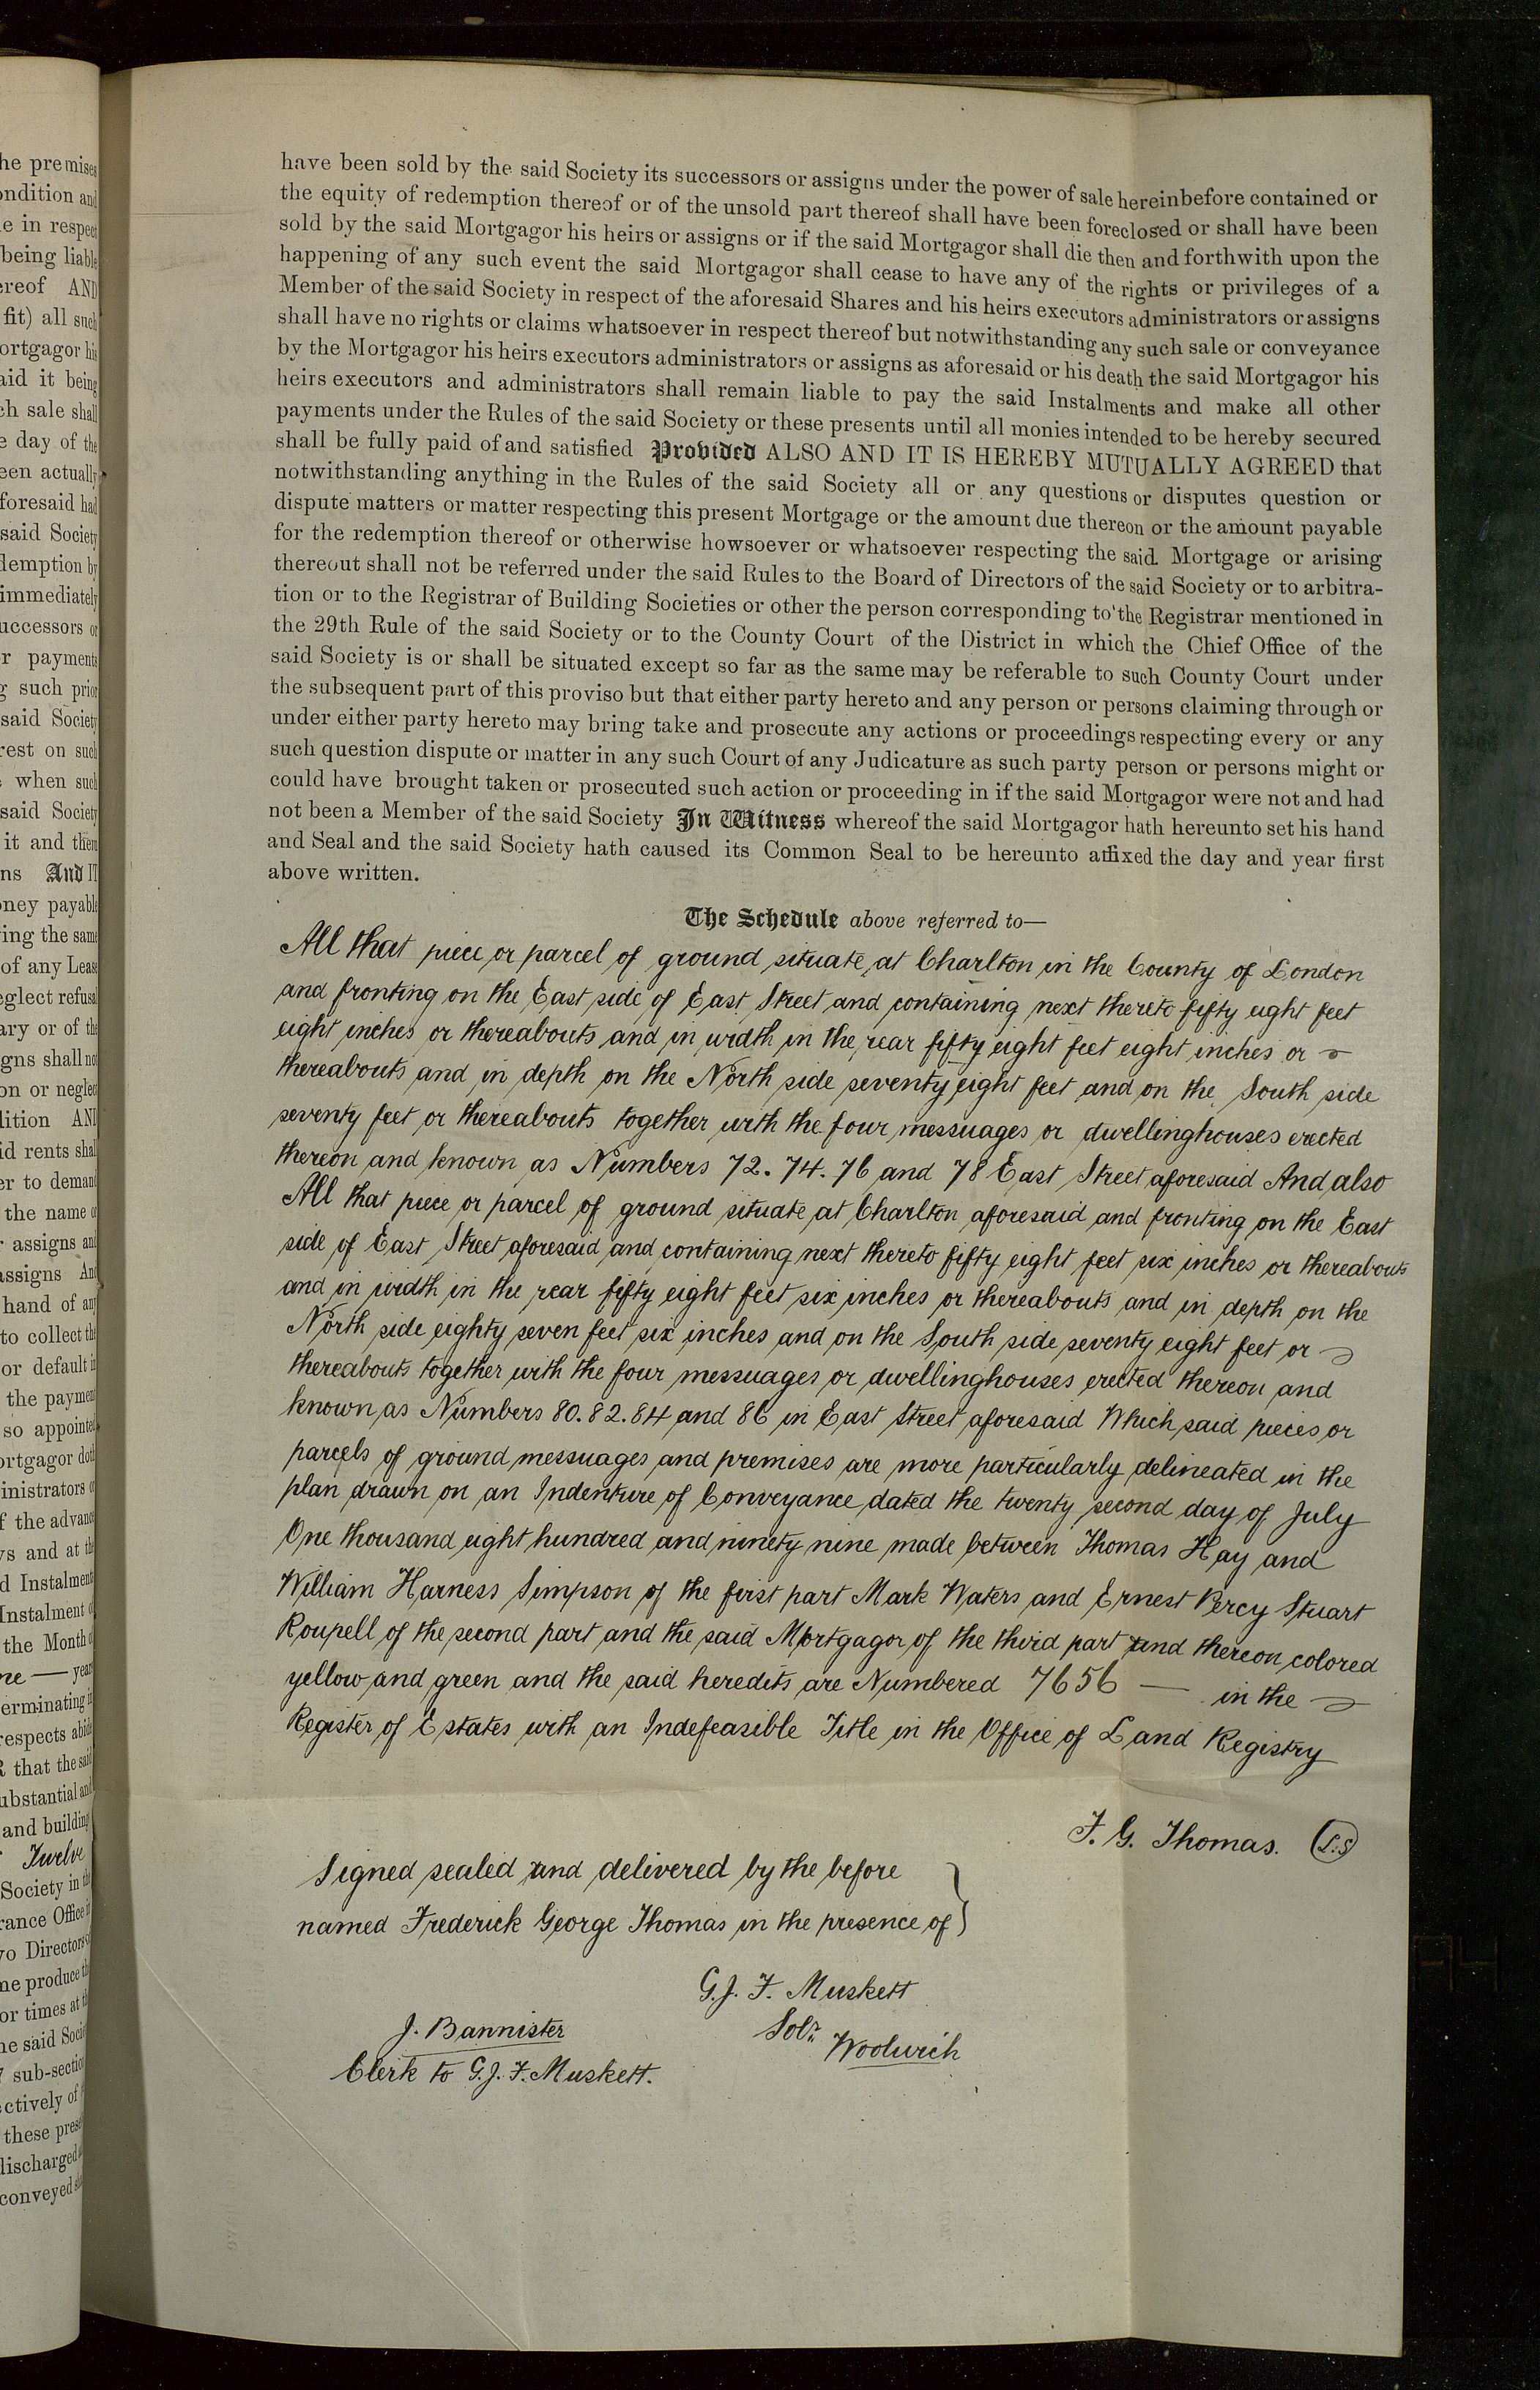 he premises
ondition and
e in respect
being liable
ereof AND
fit) all such
ortgagor his
aid it being
ch sale shall
e day of the
een actually
foresaid had
said Society
demption by
immediately
uccessors or
r payments
g such prior
said Society
rest on such
when such
said Society
it and them
ns And IT
oney payable
ing the same
of any Lease
eglect refusal
ary or of the
igns shall not
on or neglect
dition AND
id rents shall
er to demand
the name of
assigns and
assigns And
hand of any
to collect the
or default in
the payment
so appointed
ortgagor doth
inistrators or
f the advance
ys and at the
d Instalment
Instalment of
the Month of
ne — year
erminating in
respects abide
R that the said
ubstantial and
and building
Twelve
Society in the
rance Office in
o Directors
me produce the
or times at the
he said Society
7 sub-section
ectively of
these prese
discharged
conveyed
have been sold by the said Society its successors or assigns under the power of sale hereinbefore contained or
the equity of redemption thereof or of the unsold part thereof shall have been foreclosed or shall have been
sold by the said Mortgagor his heirs or assigns or if the said Mortgagor shall die then and forthwith upon the
happening of any such event the said Mortgagor shall cease to have any of the rights or privileges of a
Member of the said Society in respect of the aforesaid Shares and his heirs executors administrators or assigns
shall have no rights or claims whatsoever in respect thereof but notwithstanding any such sale or conveyance
by the Mortgagor his heirs executors administrators or assigns as aforesaid or his death the said Mortgagor his
heirs executors and administrators shall remain liable to pay the said Instalments and make all other
payments under the Rules of the said Society or these presents until all monies intended to be hereby secured
shall be fully paid of and satisfied Provided ALSO AND IT IS HEREBY MUTUALLY AGREED that
notwithstanding anything in the Rules of the said Society all or any questions or disputes question or
dispute matters or matter respecting this present Mortgage or the amount due thereon or the amount payable
for the redemption thereof or otherwise howsoever or whatsoever respecting the said Mortgage or arising
thereout shall not be referred under the said Rules to the Board of Directors of the said Society or to arbitra-
tion or to the Registrar of Building Societies or other the person corresponding to the Registrar mentioned in
the 29th Rule of the said Society or to the County Court of the District in which the Chief Office of the
said Society is or shall be situated except so far as the same may be referable to such County Court under
the subsequent part of this proviso but that either party hereto and any person or persons claiming through or
under either party hereto may bring take and prosecute any actions or proceedings respecting every or any
such question dispute or matter in any such Court of any Judicature as such party person or persons might or
could have brought taken or prosecuted such action or proceeding in if the said Mortgagor were not and had
not been a Member of the said Society In Witness whereof the said Mortgagor hath hereunto set his hand
and Seal and the said Society hath caused its Common Seal to be hereunto affixed the day and year first
above written.
The Schedule above referred to—
All that piece or parcel of ground situate at Charlton in the County of London
and fronting on the East side of East Street and containing next thereto fifty eight feet
eight inches or thereabouts and in width in the rear fifty eight feet eight inches or
thereabouts and in depth on the North side seventy eight feet and on the South side
seventy feet or thereabouts together with the four messuages or dwellinghouses erected
thereon and known as Numbers 72. 74. 76 and 78 East Street aforesaid And also
All that piece or parcel of ground situate at Charlton aforesaid and fronting on the East
side of East Street aforesaid and containing next thereto fifty eight feet six inches or thereabouts
and in width in the rear fifty eight feet six inches or thereabouts and in depth on the
North side eighty seven feet six inches and on the South side seventy eight feet or
thereabouts together with the four messuages or dwellinghouses erected thereon and
known as Numbers 80. 82. 84 and 86 in East Street aforesaid Which said pieces or
parcels of ground messuages and premises are more particularly delineated in the
plan drawn on an Indenture of Conveyance dated the twenty second day of July
One thousand eight hundred and ninety nine made between Thomas Hay and
William Harness Simpson of the first part Mark Waters and Ernest Percy Stuart
Roupell of the second part and the said Mortgagor of the third part and thereon colored
yellow and green and the said heredits are Numbered 7656 — in the
Register of Estates with an Indefeasible Title in the Office of Land Registry
F. G. Thomas. (L.S)
Signed sealed and delivered by the before
named Frederick George Thomas in the presence of
G. J. F. Muskett
Solr.
Woolwich
J. Bannister
Clerk to G. J. F. Muskett.